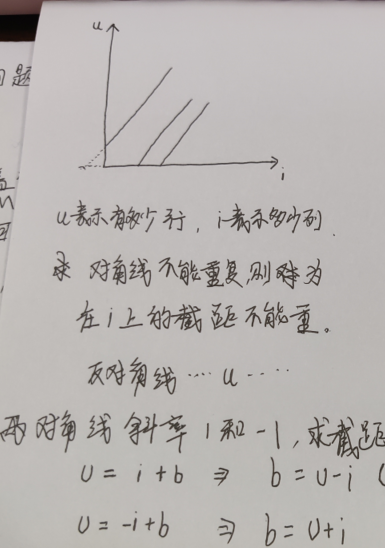 问题
u
i
u表示有多少行，i表示多少列.
求 对角线不能重复,则转为
在i上的截距不能重。
反对角线 ···· u ·····
两对角线斜率1和-1,求截距
U = i + b ⇒ b = U - i (
U = -i + b ⇒ b = U + i